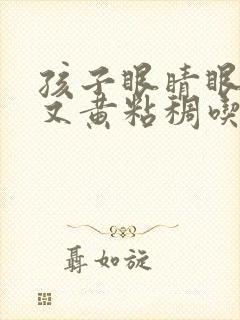 孩子眼睛眼
又黄粘稠喫
聶如旋